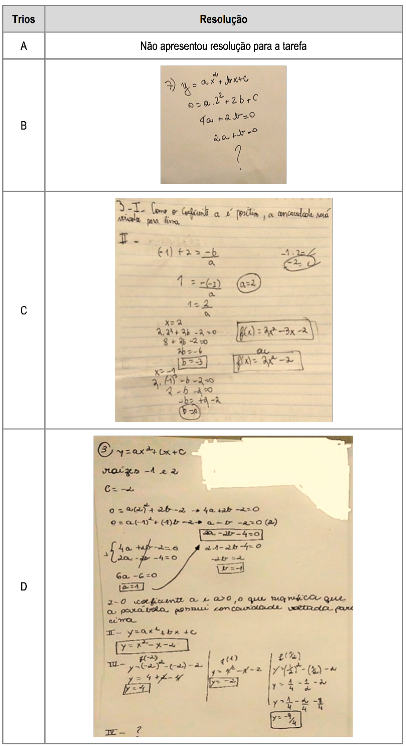 Trios Resolução
A Não apresentou resolução para a tarefa
B
7) y = ax² + bx + c
0 = a.2² + 2b + c
4a + 2b = 0
2a + b = 0
?
C
3-I- Como o coeficiente a é positivo, a concavidade será
voltada para cima
II -
(-1) + 2 = -b/a
-1 . 2 = c
-2 = c
1 = -(-2)/a
a = 2
1 = 2/a
x = 2
2.2² + 2b - 2 = 0
8 + 2b - 2 = 0
2b = -6
b = -3
f(x) = 2x² - 3x - 2
ou
f(x) = 2x² - 2
x = -1
2.(-1)² - b - 2 = 0
2 - b - 2 = 0
-b = +2 - 2
b = 0
D
3) y = ax² + bx + c
raízes -1 e 2
C = -2
0 = a(2)² + 2b - 2 → 4a + 2b - 2 = 0
0 = a(-1)² + (-1)b - 2 → a - b - 2 = 0 (2)
2a - 2b - 4 = 0
4a + 2b - 2 = 0
2a - 2b - 4 = 0
2.1 - 2b - 4 = 0
-2b = 2
b = -1
6a - 6 = 0
a = 1
2 - O coeficiente a é a>0, o que significa que
a parábola possui concavidade voltada para
cima
II - y = ax² + bx + c
y = x² - x - 2
III - f(-2)
y = (-2)² - (-2) - 2
y = 4 + 2 - 2
y = 4
f(1)
y = 1² - 1 - 2
y = -2
f(1/2)
y = (1/2)² - (1/2) - 2
y = 1/4 - 1/2 - 2
y = 1/4 - 2/4 - 8/4
y = -9/4
IV - ?